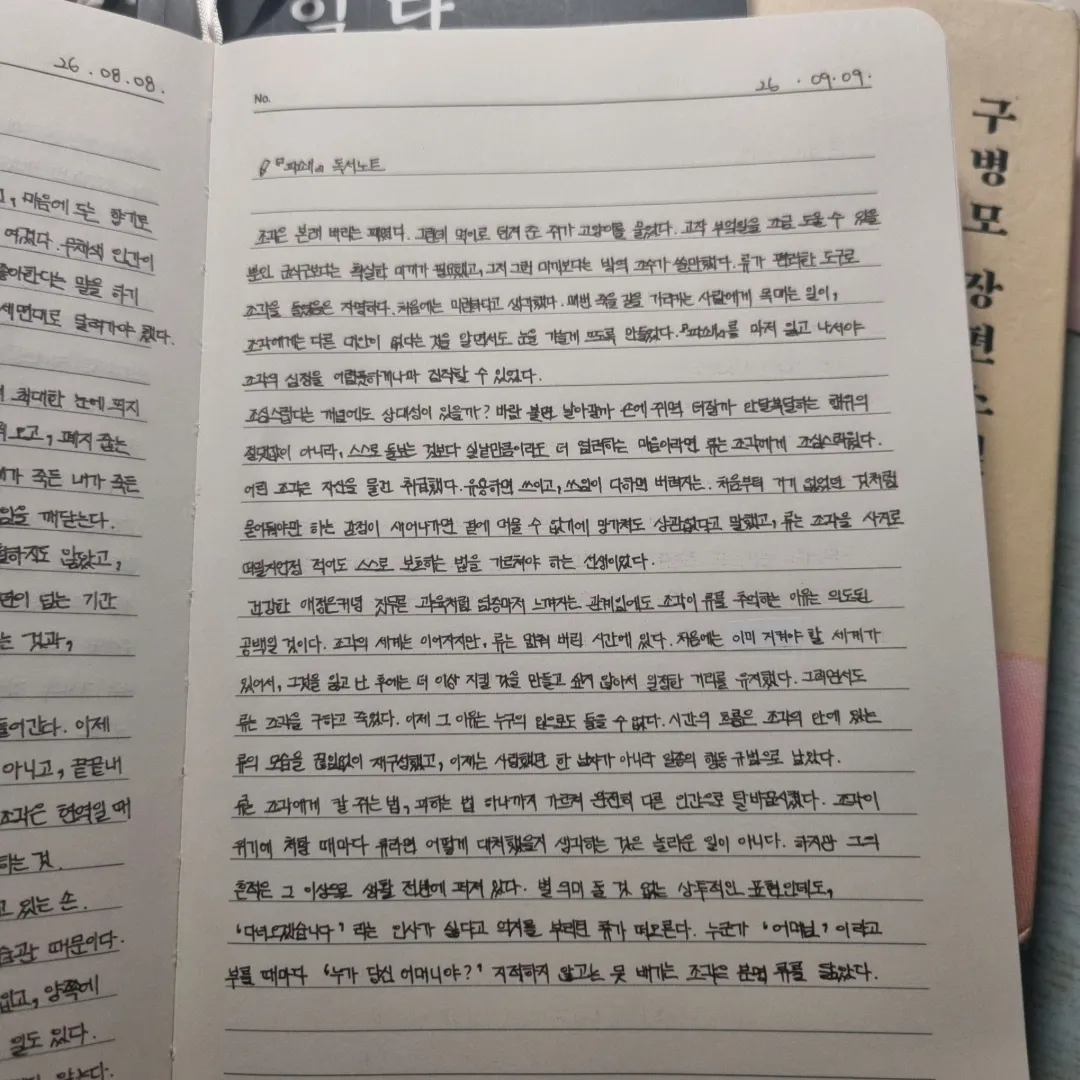 읽다
26.08.08.
, 마음에 두는 향기로
여겼다. 무채색 인간이
좋아한다는 말을 하기
세면대로 달려가야 했다.
최대한 눈에 띄지
오고, 폐지 줍는
가 죽든 내가 죽든
임을 깨닫는다.
하지도 않았고,
이 넘는 기간
는 것과,
들어간다. 이제
아니고, 끝끝내
조각은 현역일 때
하는 것.
고 있는 손.
습관 때문이다.
있고, 양쪽에
일도 있다.
No.
26.09.09.
『파쇄』 독서노트
조각은 본래 버리는 패였다. 그런데 먹이로 던져 준 쥐가 고양이를 물었다. 고작 부엌일을 조금 도울 수 있을
뿐인 군식구보다는 확실한 미끼가 필요했고, 그저 그런 미끼보다는 방역 고수가 쓸만했다. 류가 편리한 도구로
조각을 들였음은 자명하다. 처음에는 미련하다고 생각했다. 매번 죽을 길을 가리키는 사람에게 목매는 일이,
조각에게는 다른 대안이 없다는 것을 알면서도 눈을 가늘게 뜨도록 만들었다. 『파쇄』를 마저 읽고 나서야
조각의 심정을 어렴풋하게나마 짐작할 수 있었다.
조심스럽다는 개념에도 상대성이 있을까? 바람 불면 날아갈까 손에 쥐면 터질까 안달복달하는 행위의
아니라, 스스로 돌보는 것보다 실낱만큼이라도 더 염려하는 마음이라면 류는 조각에게 조심스러웠다.
어린 조각은 자신을 물건 취급했다. 유용하면 쓰이고, 쓰임이 다하면 버려지는. 처음부터 거기 없었던 것처럼
묻어둬야만 하는 감정이 새어나가면 곁에 머물 수 없기에 망가져도 상관없다고 말했고, 류는 조각을 사지로
떠밀지언정 적어도 스스로 보호하는 법을 가르쳐야 하는 선생이었다.
건강한 애정은커녕 짓무른 과육처럼 염증마저 느껴지는 관계임에도 조각이 류를 추억하는 이유는 의도된
공백일 것이다. 조각의 세계는 이어지지만, 류는 멈춰 버린 시간에 있다. 처음에는 이미 지켜야 할 세계가
있어서, 그것을 잃고 난 후에는 더 이상 지킬 것을 만들고 싶지 않아서 일정한 거리를 유지했다. 그러면서도
류는 조각을 구하고 죽었다. 이제 그 이유는 누구의 입으로도 들을 수 없다. 시간의 흐름은 조각의 안에 있는
류의 모습을 끊임없이 재구성했고, 이제는 사랑했던 한 남자가 아니라 일종의 행동 규범으로 남았다.
류는 조각에게 칼 쥐는 법, 피하는 법 하나까지 가르쳐 완전히 다른 인간으로 탈바꿈시켰다. 조각이
위기에 처할 때마다 류라면 어떻게 대처했을지 생각하는 것은 놀라운 일이 아니다. 하지만 그의
흔적은 그 이상으로 생활 전반에 퍼져 있다. 별 의미 둘 것 없는 상투적인 표현인데도,
'다녀오겠습니다' 라는 인사가 싫다고 억지를 부리면 류가 떠오른다. 누군가 '어머님' 이라고
부를 때마다 '누가 당신 어머니야?' 지적하지 않고는 못 배기는 조각은 분명 류를 닮았다.
구병모 장편소설